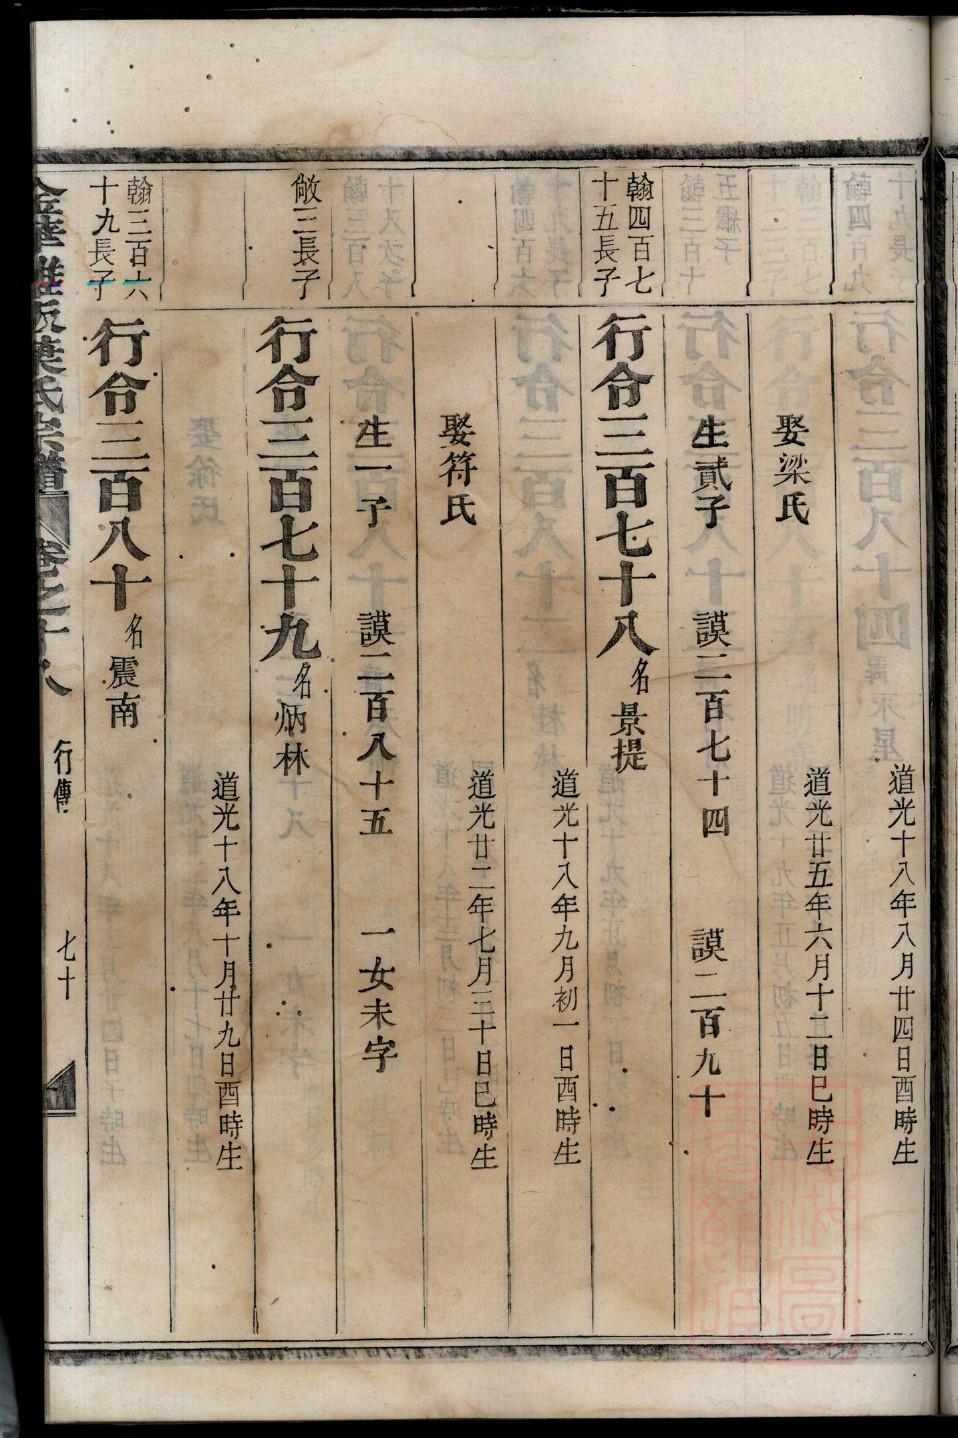 道光十八年八月廿四日酉時生
娶梁氏
道光廿五年六月十二日巳時生
生貳子 謨二百七十四 謨二百九十
翰四百七
十五長子
行令三百七十八 名景提
道光十八年九月初一日酉時生
娶符氏
道光廿二年七月三十日巳時生
生一子 謨二百八十五 一女未字
敞三長子
行令三百七十九 名炳林
道光十八年十月廿九日酉時生
翰三百六
十九長子
行令三百八十 名震南
氏宗譜 卷之十八 行傳 七十